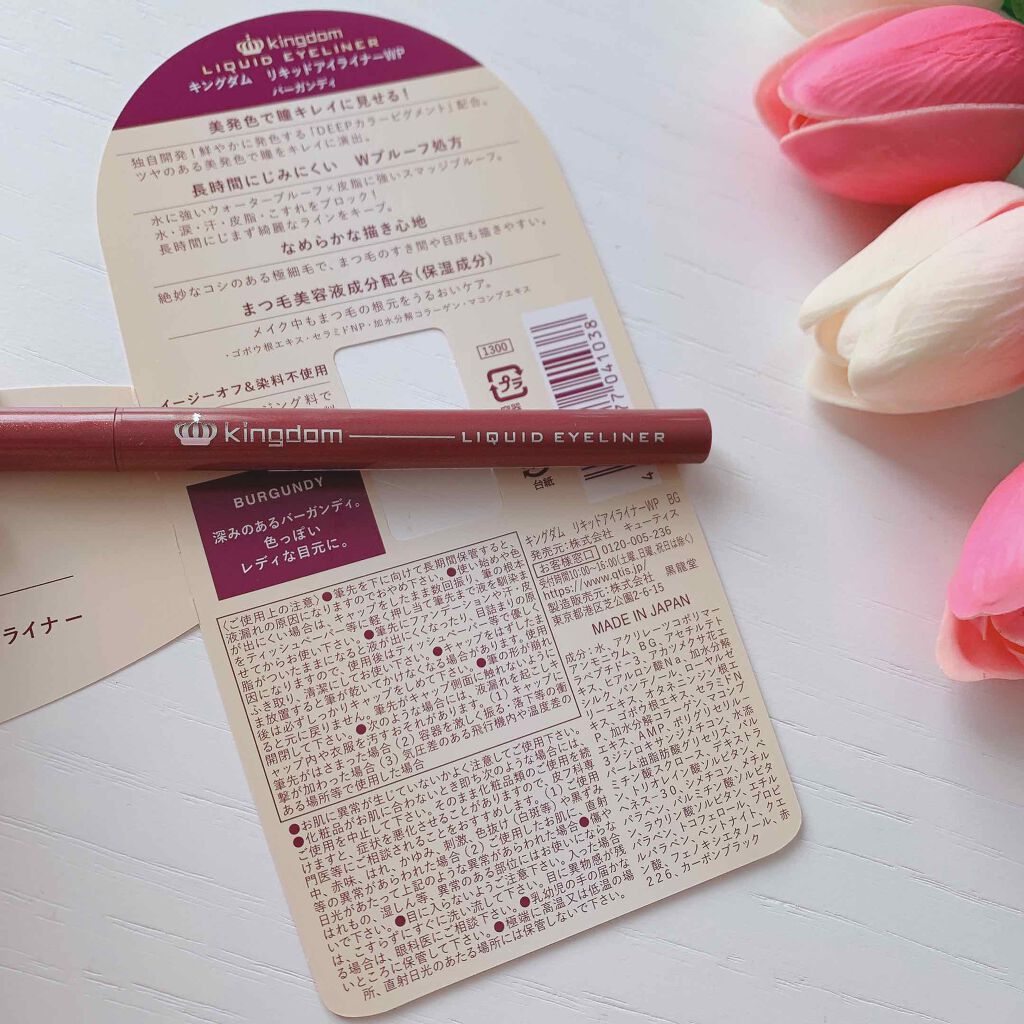 kingdom
LIQUID EYELINER
キングダム リキッドアイライナーWP
バーガンディ
美発色で瞳キレイに見せる!
独自開発!鮮やかに発色する「DEEPカラーピグメント」配合。
ツヤのある美発色で瞳をキレイに演出。
長時間にじみにくい Wプルーフ処方
水に強いウォータープルーフ×皮脂に強いスマッジプルーフ。
水・涙・汗・皮脂・こすれをブロック!
長時間にじまず綺麗なラインをキープ。
なめらかな描き心地
絶妙なコシのある極細毛で、まつ毛のすき間や目尻も描きやすい。
まつ毛美容液成分配合(保湿成分)
メイク中もまつ毛の根元をうるおいケア。
・ゴボウ根エキス・セラミドNP・加水分解コラーゲン・マコンブエキス
イージーオフ&染料不使用
ジング料で
1300
プラ
容器
台紙
77041038
4
kingdom
LIQUID EYELINER
BURGUNDY
深みのあるバーガンディ。
色っぽい
レディな目元に。
ライナー
〈ご使用上の注意〉●筆先を下に向けて長期間保管すると、
液漏れの原因になりますのでおやめ下さい。●使い始めや色
が出にくい場合は、キャップをしたまま数回振り、筆の根本
をティッシュペーパー等に軽く押し当て筆先まで液を馴染ま
せてからお使い下さい。●筆先にファンデーションや汗・皮
脂がついたままになると液が出にくくなったり、目詰まりの原
因になりますので、使用後はティッシュペーパー等で優しく
ふき取り、清潔にしてお使い下さい。●キャップをはずしたま
ま放置すると筆が乾いてかけなくなる場合があります。使用
後は必ずしっかりキャップをしめて下さい。●筆の形が崩れ
ると元に戻りません。筆先がキャップ側面に触れないように
開閉して下さい。●次のような場合には、液漏れを起こしキ
ャップ内や衣服を汚すおそれがあります。(1)キャップに
筆先がはさまった場合(2)容器を激しく振る・落下等の衝
撃が加わった場合(3)気圧差のある飛行機内や温度差の
ある場所等で使用した場合
●お肌に異常が生じていないかよく注意してご使用下さい。
●化粧品がお肌に合わないとき即ち次のような場合には、
ご使用を中止して下さい。そのまま化粧品類のご使用を続
けますと、症状を悪化させることがありますので、皮フ科専
門医等にご相談されることをおすすめします。(1)ご使用
中、赤味、はれ、かゆみ、刺激、色抜け(白斑等)や黒ずみ
等の異常があらわれた場合(2)ご使用したお肌に、直射
日光があたって上記のような異常があらわれた場合●傷や
はれもの、湿しん等、異常のある部位にはお使いにならな
いで下さい。●目に入らないようご注意下さい。入った場合
は、こすらずにすぐに洗い流して下さい。目に異物感が残
る場合は、眼科医にご相談下さい。●乳幼児の手の届かな
いところに保管して下さい。●極端に高温又は低温の場
所、直射日光のあたる場所には保管しないで下さい。
キングダム リキッドアイライナーWP BG
発売元:株式会社 キューティス
お客様窓口 0120-005-236
受付時間10:00~16:00(土曜、日曜、祝日は除く)
https://www.qtis.jp/
製造販売元:株式会社 黒龍堂
東京都港区芝公園2-6-15
MADE IN JAPAN
成分:水、アクリレーツコポリマー
アンモニウム、BG、アセチルテト
ラペプチド-3、アカツメクサ花エ
キス、ヒアルロン酸Na、加水分解
シルク、パンテノール、ローヤルゼ
リーエキス、オタネニンジン根エ
キス、ゴボウ根エキス、セラミドN
P、加水分解コラーゲン、マコンブ
エキス、AMP、ポリグリセリル-
3ジシロキサンジメチコン、水添
パーム油脂肪酸グリセリズ、パル
ミチン酸スクロース、デキストラ
ン、トリオレイン酸ソルビタン、ベ
ヘネス-30、ジメチコン、メチル
パラベン、パルミチン酸ソルビタ
ン、ラウリン酸ソルビタン、エチル
パラベン、トコフェロール、プロピ
ルパラベン、ベントナイト、クエ
ン酸、フェノキシエタノール、赤
226、カーボンブラック